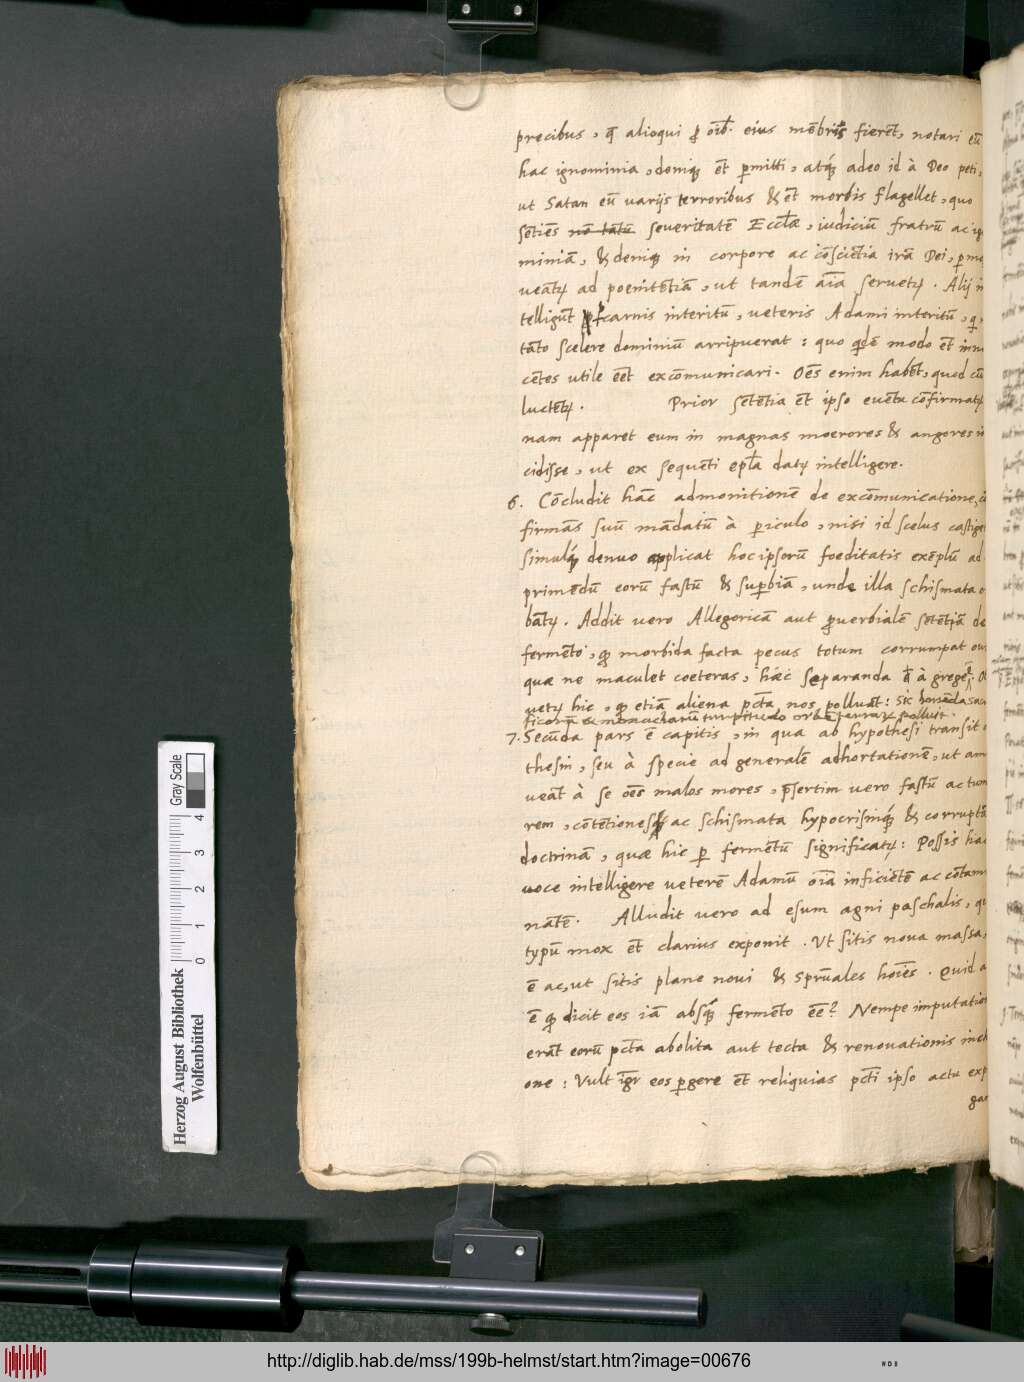 precibus, q̄ alioqui ꝓ oīb. eius mēbris fierēt, notari eū
hac ignominia, deniq; ēt ꝑmitti, atq; adeo id à Deo peti,
ut Satan eū uarijs terroribus & ēt morbis flagellet, quo
sētiēs nō tātū seueritatē Ecclæ, iudiciū fratrū ac ig
miniā, & deniq; in corpore ac cōsciētia irā Dei, ꝑmo
ueātʳ ad poenitētiā, ut tandē aīa seruetʳ. Alij in
telligūt carnis interitū, ueteris Adami interitū, q
tāto scelere dominiū arripuerat: quo qdē modo ēt inno
cētes utile eēt excōmunicari. Oēs enim habēt, quod cū
luctētʳ. Prior sētētia ēt ipso euētu cōfirmatʳ
nam apparet eum in magnas moerores & angores in
cidisse, ut ex sequēti epla datʳ intelligere.
6. Cōcludit hāc admonitionē de excōmunicatione, cō
firmās suū mādatū à ꝑiculo, nisi id scelus castige
simulq; denuo applicat hoc ipsorū foeditatis exēplū ad
primēdū eorū fastū & suꝑbiā, unde illa schismata o
bātʳ. Addit uero Allegoricā aut ꝓuerbialē sētētiā de
fermēto, qđ morbida facta pecus totum corrumpat oui
quæ ne maculet coeteras, separanda à grege.
uetʳ hic, qđ etiā aliena pcta nos polluāt: Sic horrēda sac
ficorū & monachorū turpitudo orbē terraꝝ polluit.
7. Secūda pars ē capitis, in qua ab hypothesi transit
thesin, seu à specie ad generalē adhortationē, ut am
ueāt à se oēs malos mores, p̄sertim uero fastū ac tum
rem, cōtētiones ac schismata hypocrisinq; & corruptā
doctrinā, quæ hic ꝑ fermētū significatʳ: Possis hac
uoce intelligere ueterē Adamū oīa inficiētē ac cōtami
nātē. Alludit uero ad esum agni paschalis, qu
typū mox ēt clarius exponit. Ut sitis noua massa,
ē ac, ut sitis plane noui & sprūales hoīes. Quid a
ē qđ dicit eos iā absq; fermēto eē? Nempe imputatio
erāt eorū pcta abolita aut tecta & renouationis inch
one: Vult igr̄ eos ꝑgere ēt reliquias pcti ipso actu exp
gar
Herzog August Bibliothek
Wolfenbüttel
0 1 2 3 4
Gray Scale
http://diglib.hab.de/mss/199b-helmst/start.htm?image=00676
WDB